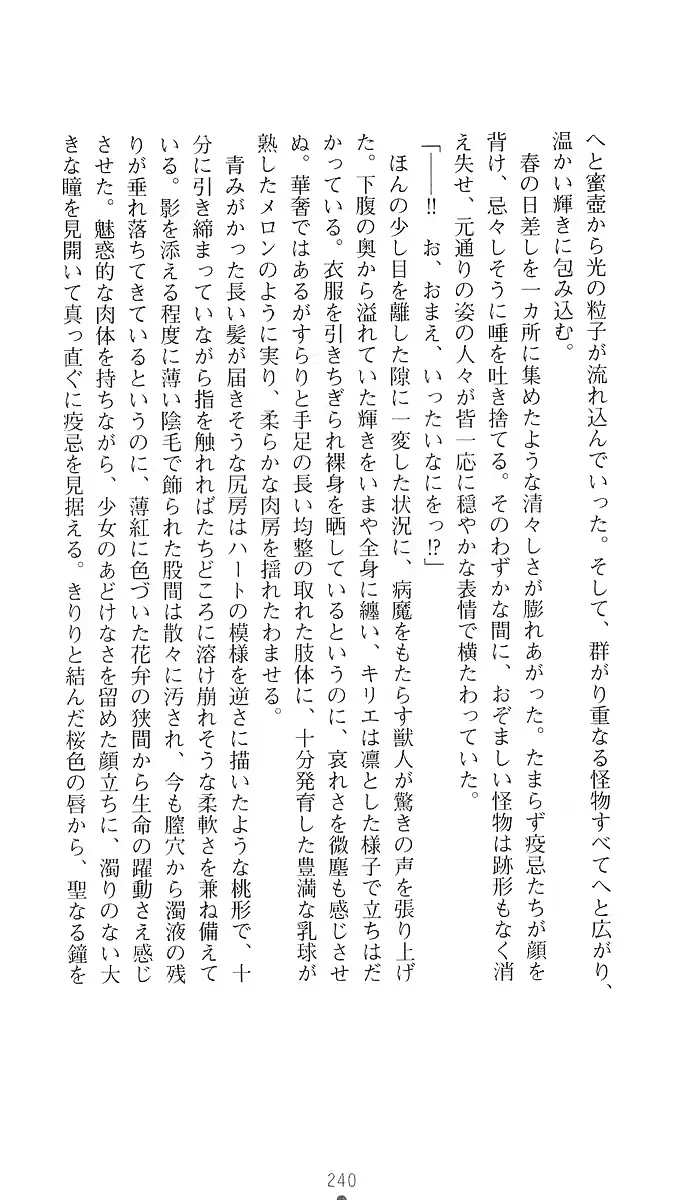 へと蜜壺から光の粒子が流れ込んでいった。そして、群がり重なる怪物すべてへと広がり、
温かい輝きに包み込む。
春の日差しを一カ所に集めたような清々しさが膨れあがった。たまらず疫忌たちが顔を
背け、忌々しそうに唾を吐き捨てる。そのわずかな間に、おぞましい怪物は跡形もなく消
え失せ、元通りの姿の人々が皆一応に穏やかな表情で横たわっていた。
「――‼　お、おまえ、いったいなにをっ⁉」
ほんの少し目を離した隙に一変した状況に、病魔をもたらす獣人が驚きの声を張り上げ
た。下腹の奥から溢れていた輝きをいまや全身に纏い、キリエは凛とした様子で立ちはだ
かっている。衣服を引きちぎられ裸身を晒しているというのに、哀れさを微塵も感じさせ
ぬ。華奢ではあるがすらりと手足の長い均整の取れた肢体に、十分発育した豊満な乳球が
熟したメロンのように実り、柔らかな肉房を揺れたわませる。
青みがかった長い髪が届きそうな尻房はハートの模様を逆さに描いたような桃形で、十
分に引き締まっていながら指を触れればたちどころに溶け崩れそうな柔軟さを兼ね備えて
いる。影を添える程度に薄い陰毛で飾られた股間は散々に汚され、今も膣穴から濁液の残
りが垂れ落ちてきているというのに、薄紅に色づいた花弁の狭間から生命の躍動さえ感じ
させた。魅惑的な肉体を持ちながら、少女のあどけなさを留めた顔立ちに、濁りのない大
きな瞳を見開いて真っ直ぐに疫忌を見据える。きりりと結んだ桜色の唇から、聖なる鐘を
240